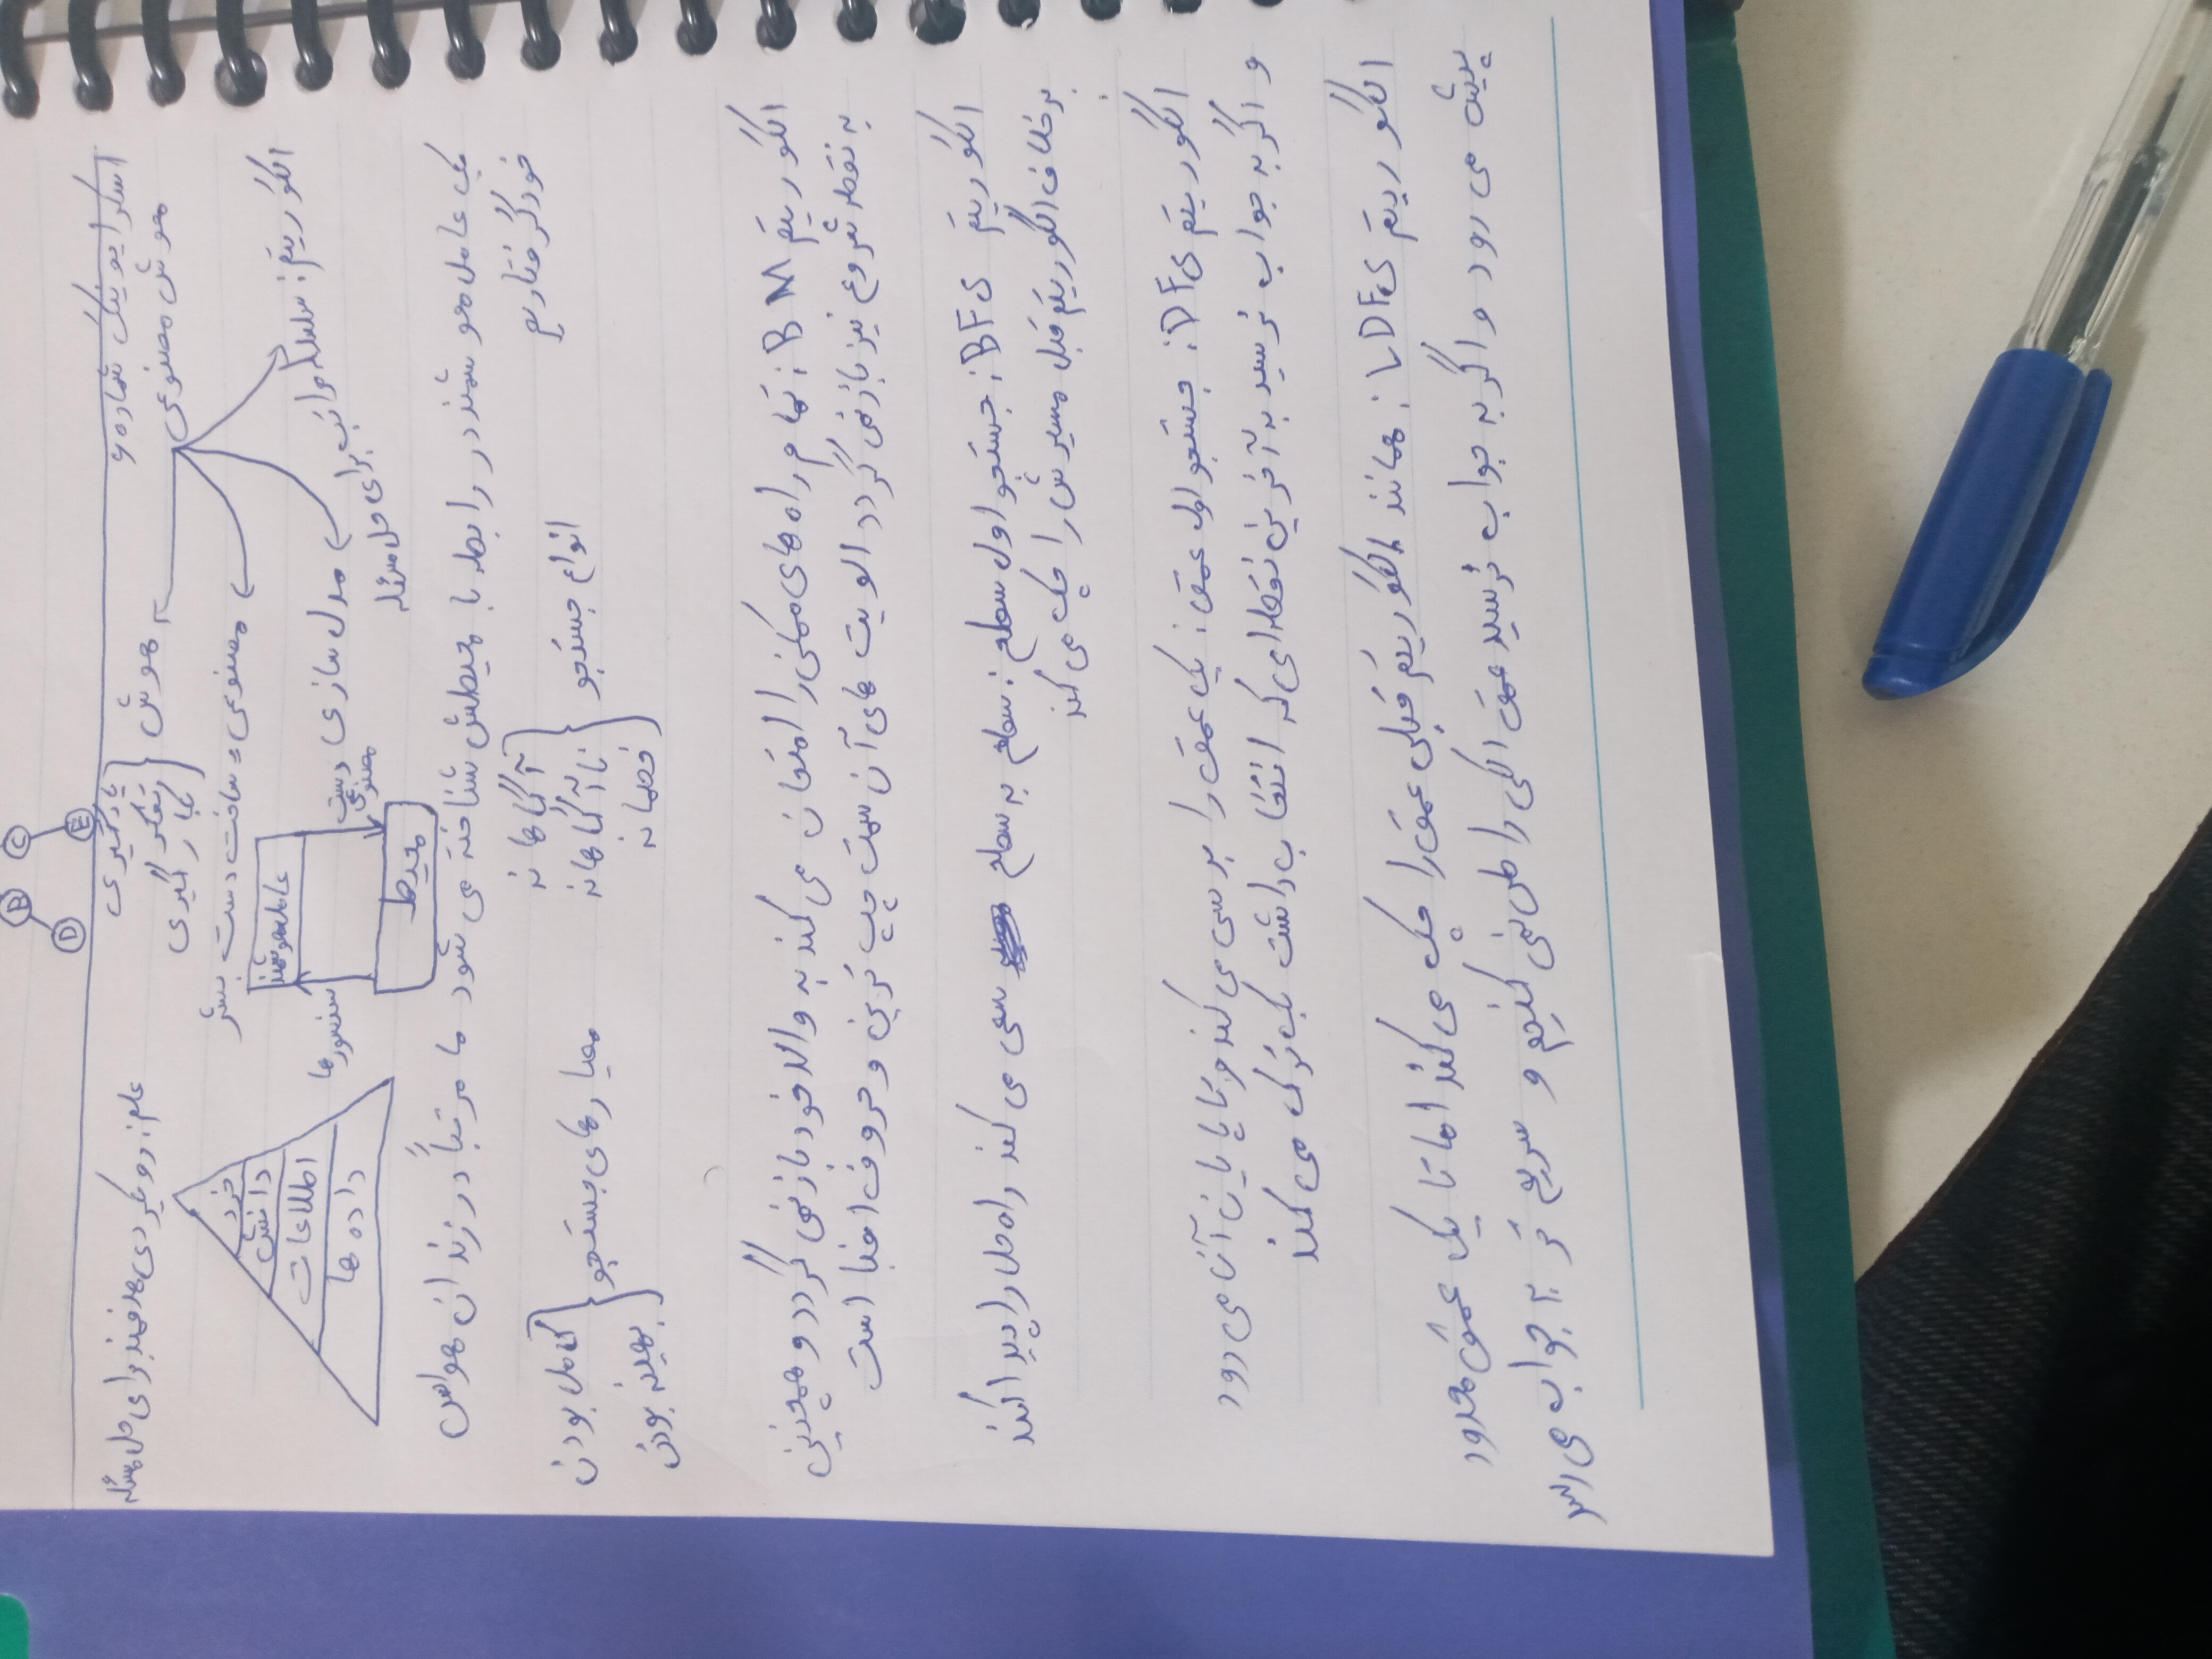 B C
D E
اسکرایوینگ شماره ۶
هوش مصنوعی
هوش
یادگیری
تفکر
بکارگیری
علم: رویکردی هدفمند برای حل مسئله
مصنوعی و ساخت دست بشر
مدل سازی
الگوریتم: سلسله مراتب برای حل مسئله
عامل هوشمند
سنسورها
دست مصنوعی
محیط
خرد
دانش
اطلاعات
داده ها
یک عامل هوشمند در رابطه با محیطش شناخته می شود ما مرتباً در زندان هواس
خود گرفتاریم
انواع جستجو
آگاهانه
ناآگاهانه
خصمانه
معیارهای جستجو
کامل بودن
بهینه بودن
الگوریتم BM: تمام راه های ممکن را امتحان می کند به والد خود باز نمی گردد و همچنین
به نقطه شروع نیز باز نمی گردد الویت های آن سمت چپ ترین و حروف الفبا است
الگوریتم BFS: جستجو اول سطح: سطح به سطح سعی می کند راه حل را پیدا کند
برخلاف الگوریتم قبل مسیرش را چک می کند
الگوریتم DFS: جستجو اول عمق: یک عمق را بررسی می کند و تا پایان آن می رود
و اگر به جواب نرسید به آخرین نقطه ای که انتخاب داشت بک ترک می کند
الگوریتم LDFS: همانند الگوریتم قبلی عمق را چک می کند اما تا یک عمق محدود
پیش می رود و اگر به جواب نرسید عمق الکی را طی نمی کنیم و سریع تر به جواب می رسد